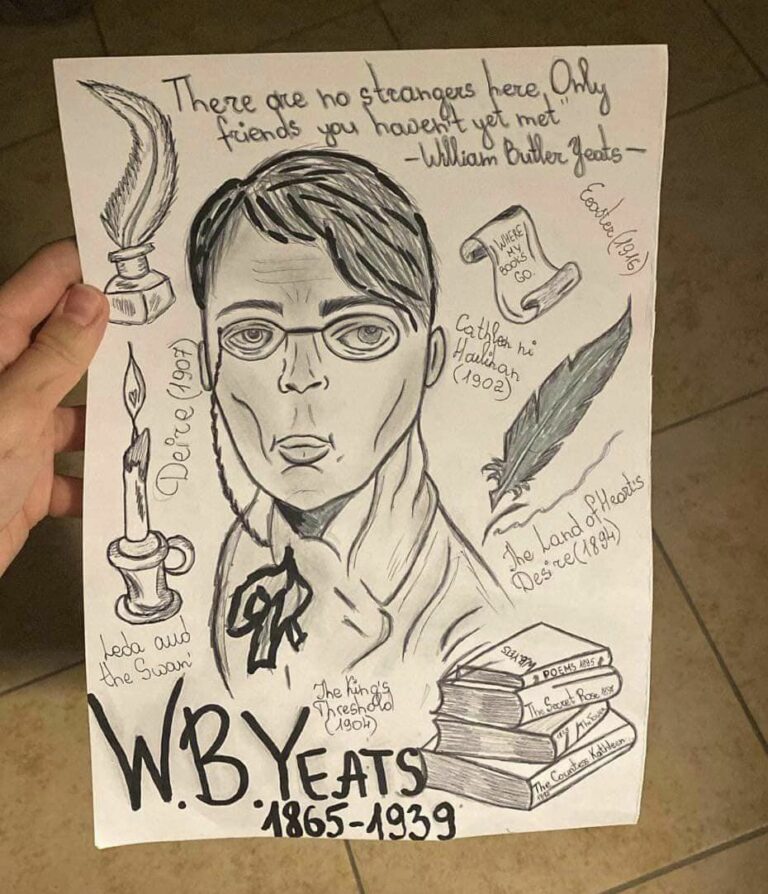 There are no strangers here, Only
friends you haven't yet met"
-William Butler Yeats-
Easter (1916)
WHERE
MY
BOOKS
GO.
Cathleen ni
Houlihan
(1902)
Deire (1907)
The Land of Heart's
Desire (1894)
Leda and
the Swan'
The King's
Threshold
(1904)
W.B YEATS
POEMS 1895
The Secret Rose
The Tower
The Countess Kathleen
W.B.YEATS
1865-1939